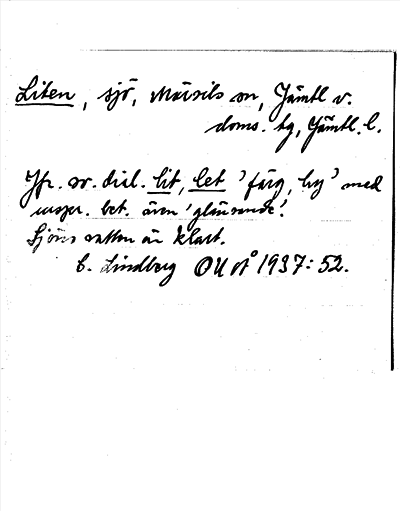 Liten, sjö, Mörsils sn, Jämtl v.
doms. hg, Jämtl. l.
Jfr. sv. dial. lit, let 'färg, hy' med
urspr. bet. även 'glänsande'.
Sjöns vatten är klart.
C. Lindberg OUÅ 1937: 52.